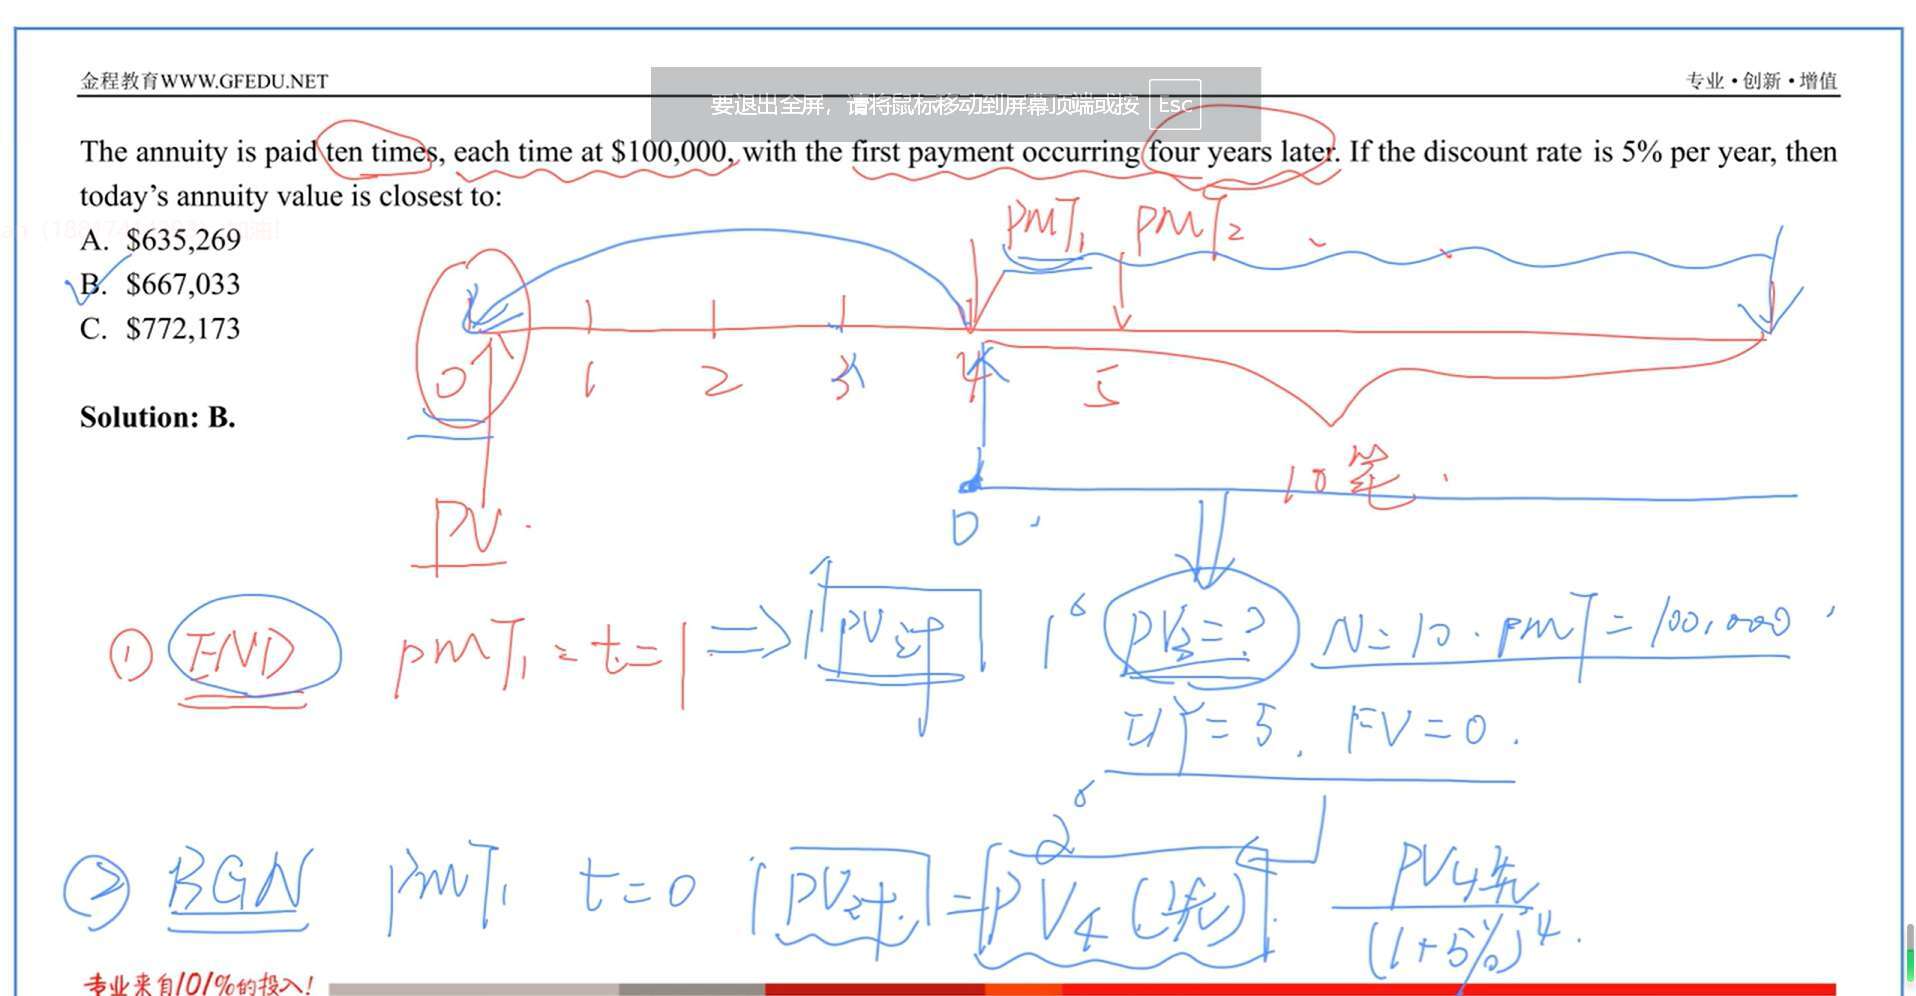 金程教育WWW.GFEDU.NET
专业·创新·增值
要退出全屏，请将鼠标移动到屏幕顶端或按 Esc
The annuity is paid ten times, each time at $100,000, with the first payment occurring four years later. If the discount rate is 5% per year, then
today's annuity value is closest to:
A. $635,269
B. $667,033
C. $772,173
Solution: B.
PMT₁ PMT₂
0 1 2 3 4 5
10笔
PV
0
① END PMT₁ = t=1 ⇒ PV PV₃=? N=10. PMT=100,000
I/Y=5. FV=0.
② BGN PMT₁ t=0 PV = PV₄ PV₄
(1+5%)⁴
专业来自101%的投入!